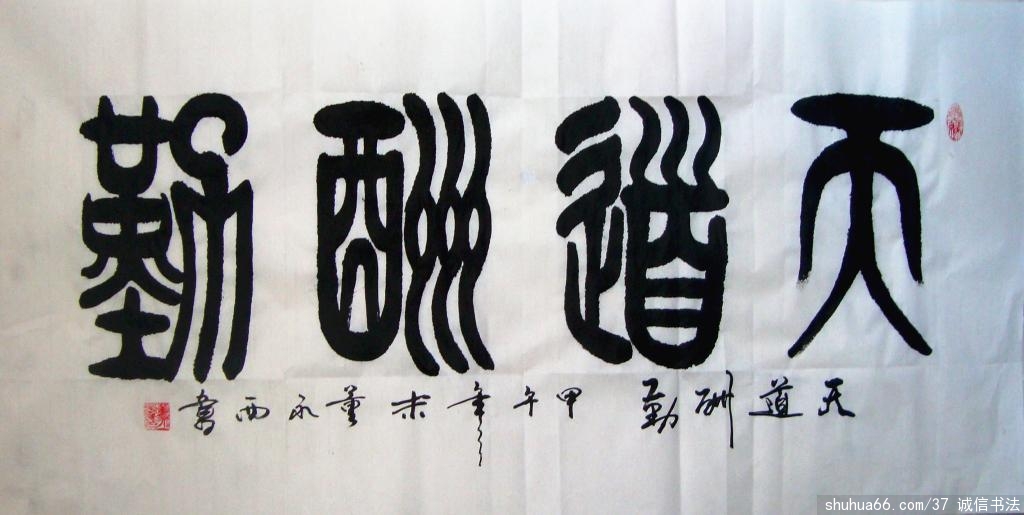 天道酬勤
天道酬勤 甲午年末 董永西書
shuhua66.com/37 诚信书法